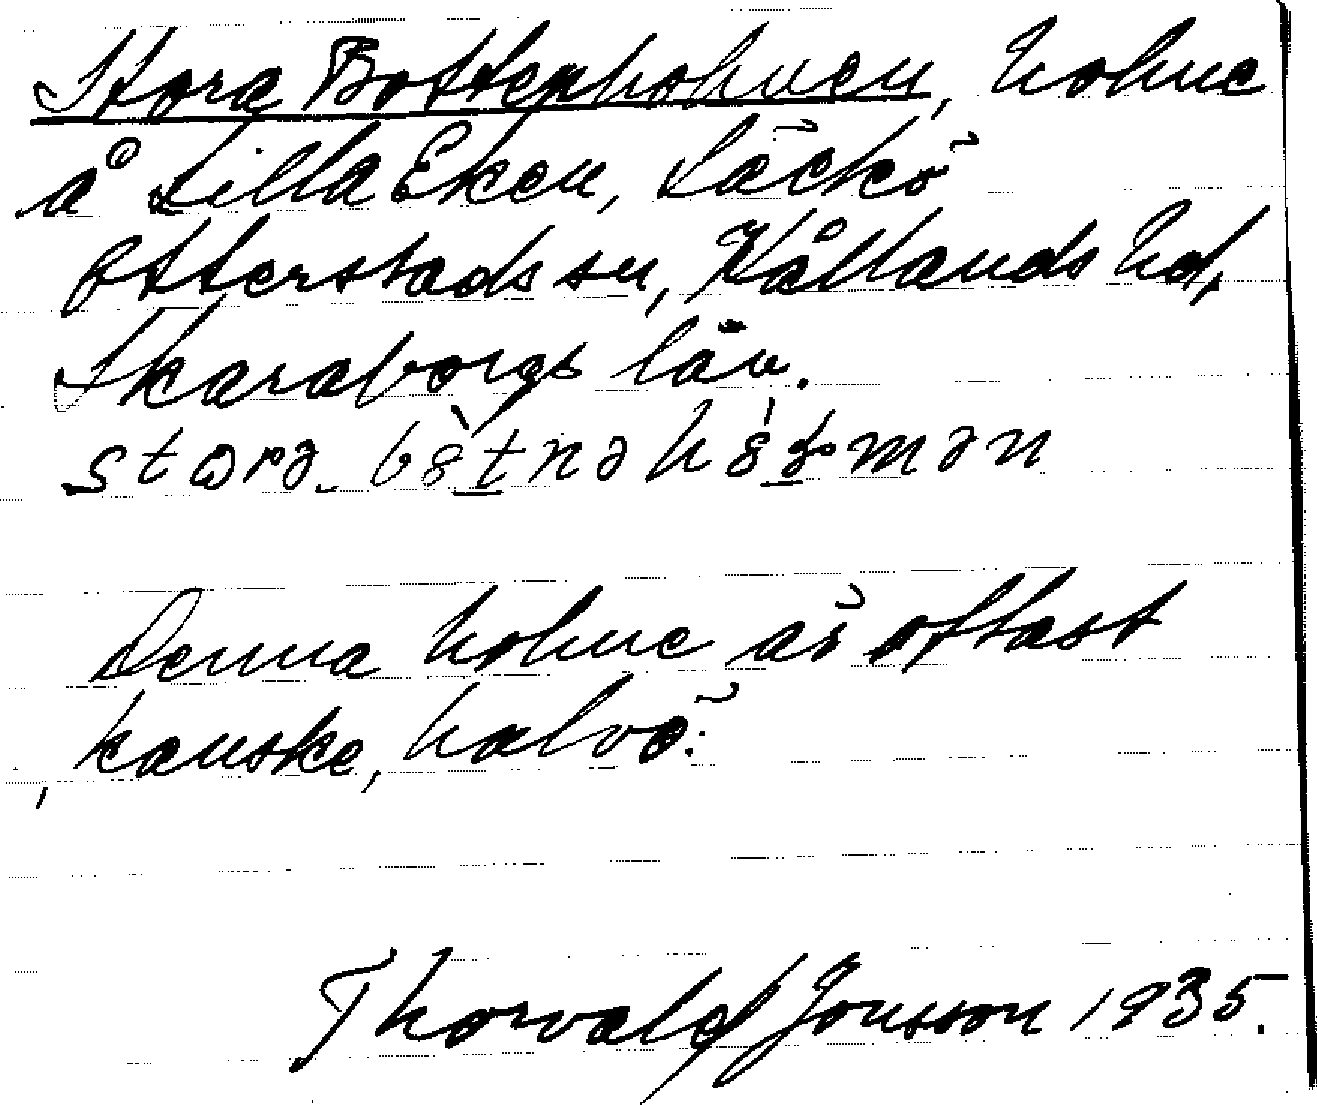 Stora Bottenholmen, holme
å Lilla Eken, Läckö
Otterstads sn, Kållands hd,
Skaraborgs län.
Denna holme är oftast
kanske, halvö.
Thorvald Jonsson 1935.